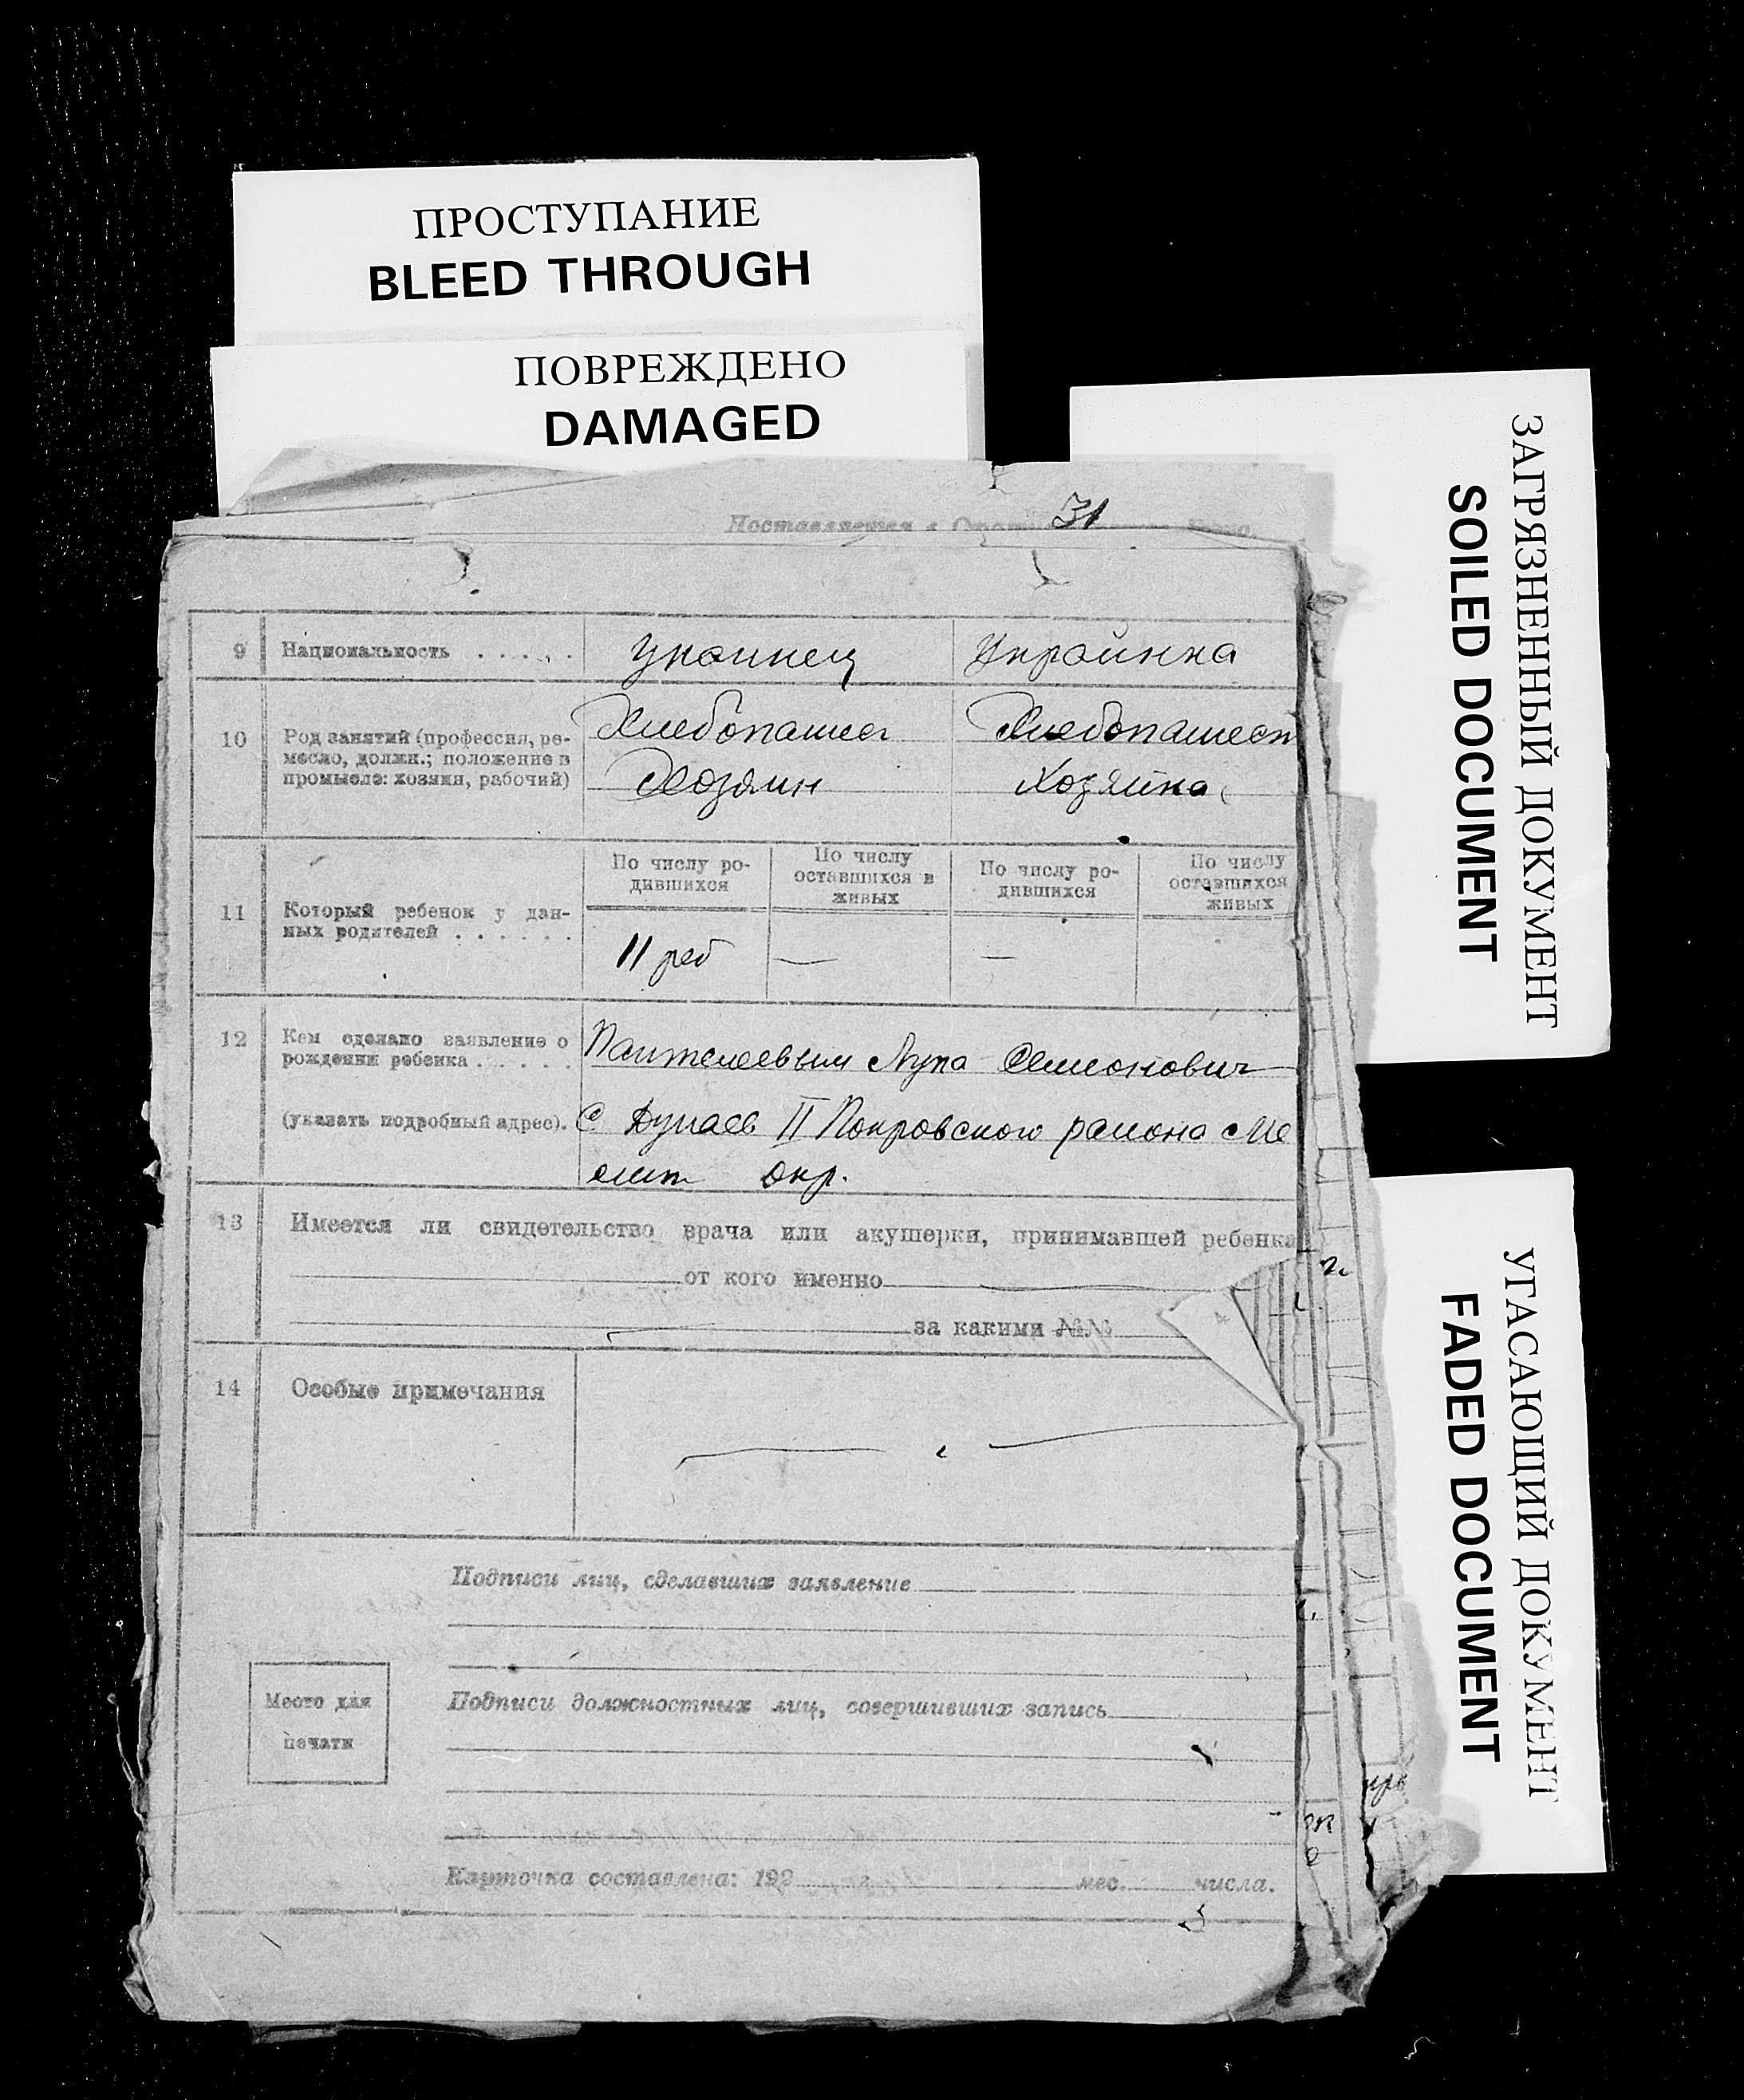 ПРОСТУПАНИЕ
BLEED THROUGH
ПОВРЕЖДЕНО
DAMAGED
ЗАГРЯЗНЕННЫЙ ДОКУМЕНТ
SOILED DOCUMENT
УГАСАЮЩИЙ ДОКУМЕНТ
FADED DOCUMENT
31
9 Национальность . . . . . Украинец Украинка
10 Род занятий (профессия, ре-
месло, должн.; положение в
промысле: хозяин, рабочий)
Хлебопашест Хлебопашест
Хозяин Хозяйка
11 Который ребенок у дан-
ных родителей . . . . . .
По числу ро-
дившихся
По числу
оставшихся в
живых
По числу ро-
дившихся
По числу
оставшихся
живых
11 реб — —
12 Кем сделано заявление о
рождении ребенка . . . . .
(указать подробный адрес).
Пантелеевым Лупа Семионович
С Дунаев II Покровского района Ме
лит окр.
13 Имеется ли свидетельство врача или акушерки, принимавшей ребенка
от кого именно
за какими №№
14 Особые примечания
Подписи лиц, сделавших заявление
Место для
печати
Подписи должностных лиц, совершивших запись
Карточка составлена: 192 г. мес. числа.